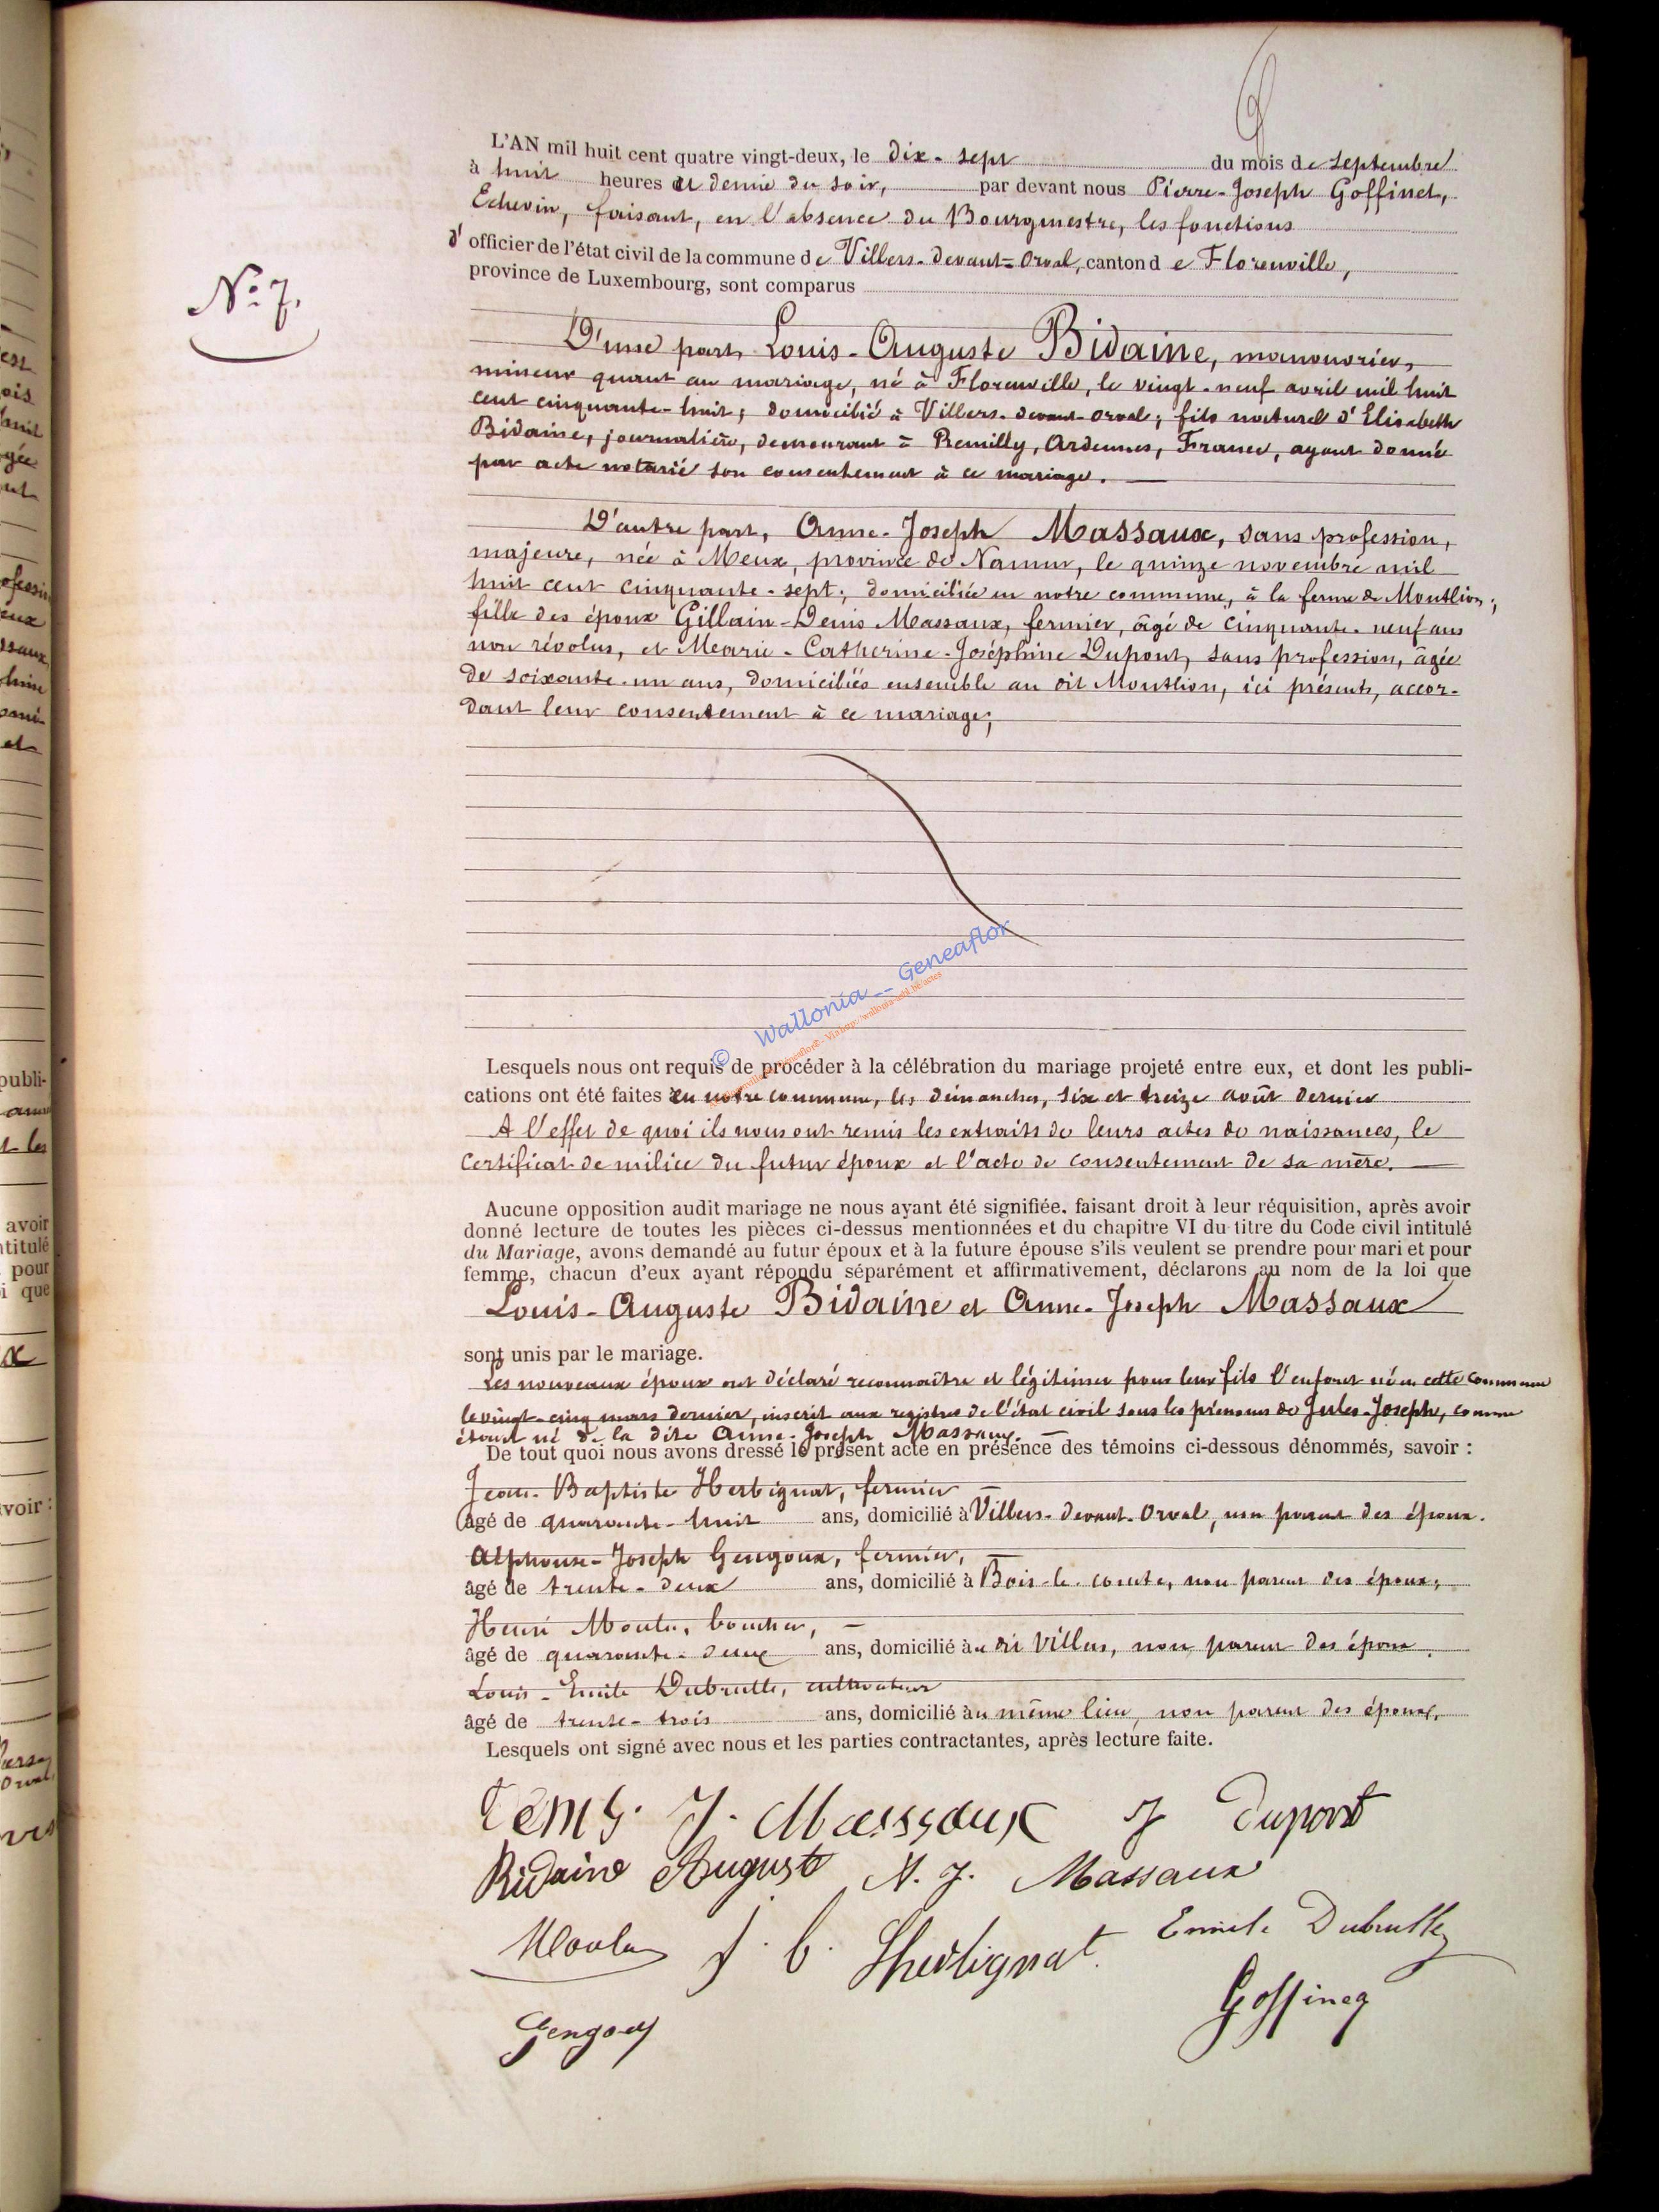 L'AN mil huit cent quatre vingt-deux, le dix-sept du mois de septembre
à huit heures et demie du soir, par devant nous Pierre-Joseph Goffinet,
Echevin, faisant, en l'absence du Bourgmestre, les fonctions
d'officier de l'état civil de la commune de Villers-devant-Orval, canton de Florenville,
province de Luxembourg, sont comparus
N° 7.
D'une part, Louis-Auguste Bidaine, manouvrier,
mineur quant au mariage, né à Florenville, le vingt-neuf avril mil huit
cent cinquante-huit, domicilié à Villers-devant-Orval; fils naturel d'Elisabeth
Bidaine, journalière, demeurant à Remilly, Ardennes, France, ayant donné
par acte notarié son consentement à ce mariage.
D'autre part, Anne-Joseph Massaux, sans profession,
majeure, née à Meux, province de Namur, le quinze novembre mil
huit cent cinquante-sept, domiciliée en notre commune, à la ferme de Montlion;
fille des époux Gillain-Denis Massaux, fermier, âgé de cinquante-neuf ans
non révolus, et Mearie-Catherine-Joséphine Dupont, sans profession, âgée
de soixante-un ans, domiciliés ensemble au dit Montlion, ici présents, accor-
dant leur consentement à ce mariage;
© Wallonia -- Geneaflor
Lesquels nous ont requis de procéder à la célébration du mariage projeté entre eux, et dont les publi-
cations ont été faites en notre commune, les dimanches, six et treize août dernier
A l'effet de quoi ils nous ont remis les extraits de leurs actes de naissances, le
certificat de milice du futur époux et l'acte de consentement de sa mère.
Aucune opposition audit mariage ne nous ayant été signifiée, faisant droit à leur réquisition, après avoir
donné lecture de toutes les pièces ci-dessus mentionnées et du chapitre VI du titre du Code civil intitulé
du Mariage, avons demandé au futur époux et à la future épouse s'ils veulent se prendre pour mari et pour
femme, chacun d'eux ayant répondu séparément et affirmativement, déclarons au nom de la loi que
Louis-Auguste Bidaine et Anne-Joseph Massaux
sont unis par le mariage.
Les nouveaux époux ont déclaré reconnaître et légitimer pour leur fils l'enfant né en cette commune
le vingt-cinq mars dernier, inscrit aux registres de l'état civil sous les prénoms de Jules-Joseph, comme
étant né de la dite Anne-Joseph Massaux.
De tout quoi nous avons dressé le présent acte en présence des témoins ci-dessous dénommés, savoir :
Jean-Baptiste Herbignat, fermier
âgé de quarante-huit ans, domicilié à Villers-devant-Orval, non parent des époux.
Alphonse-Joseph Gengoux, fermier,
âgé de trente-deux ans, domicilié à Bois-le-comte, non parent des époux;
Henri Moulu, boucher,
âgé de quarante-deux ans, domicilié au dit Villers, non parent des époux.
Louis-Emile Dubrulle, cultivateur
âgé de trente-trois ans, domicilié au même lieu, non parent des époux.
Lesquels ont signé avec nous et les parties contractantes, après lecture faite.
J. Massaux J Dupont
Bidaine Auguste A. J. Massaux
J. b. Emile Dubrulle